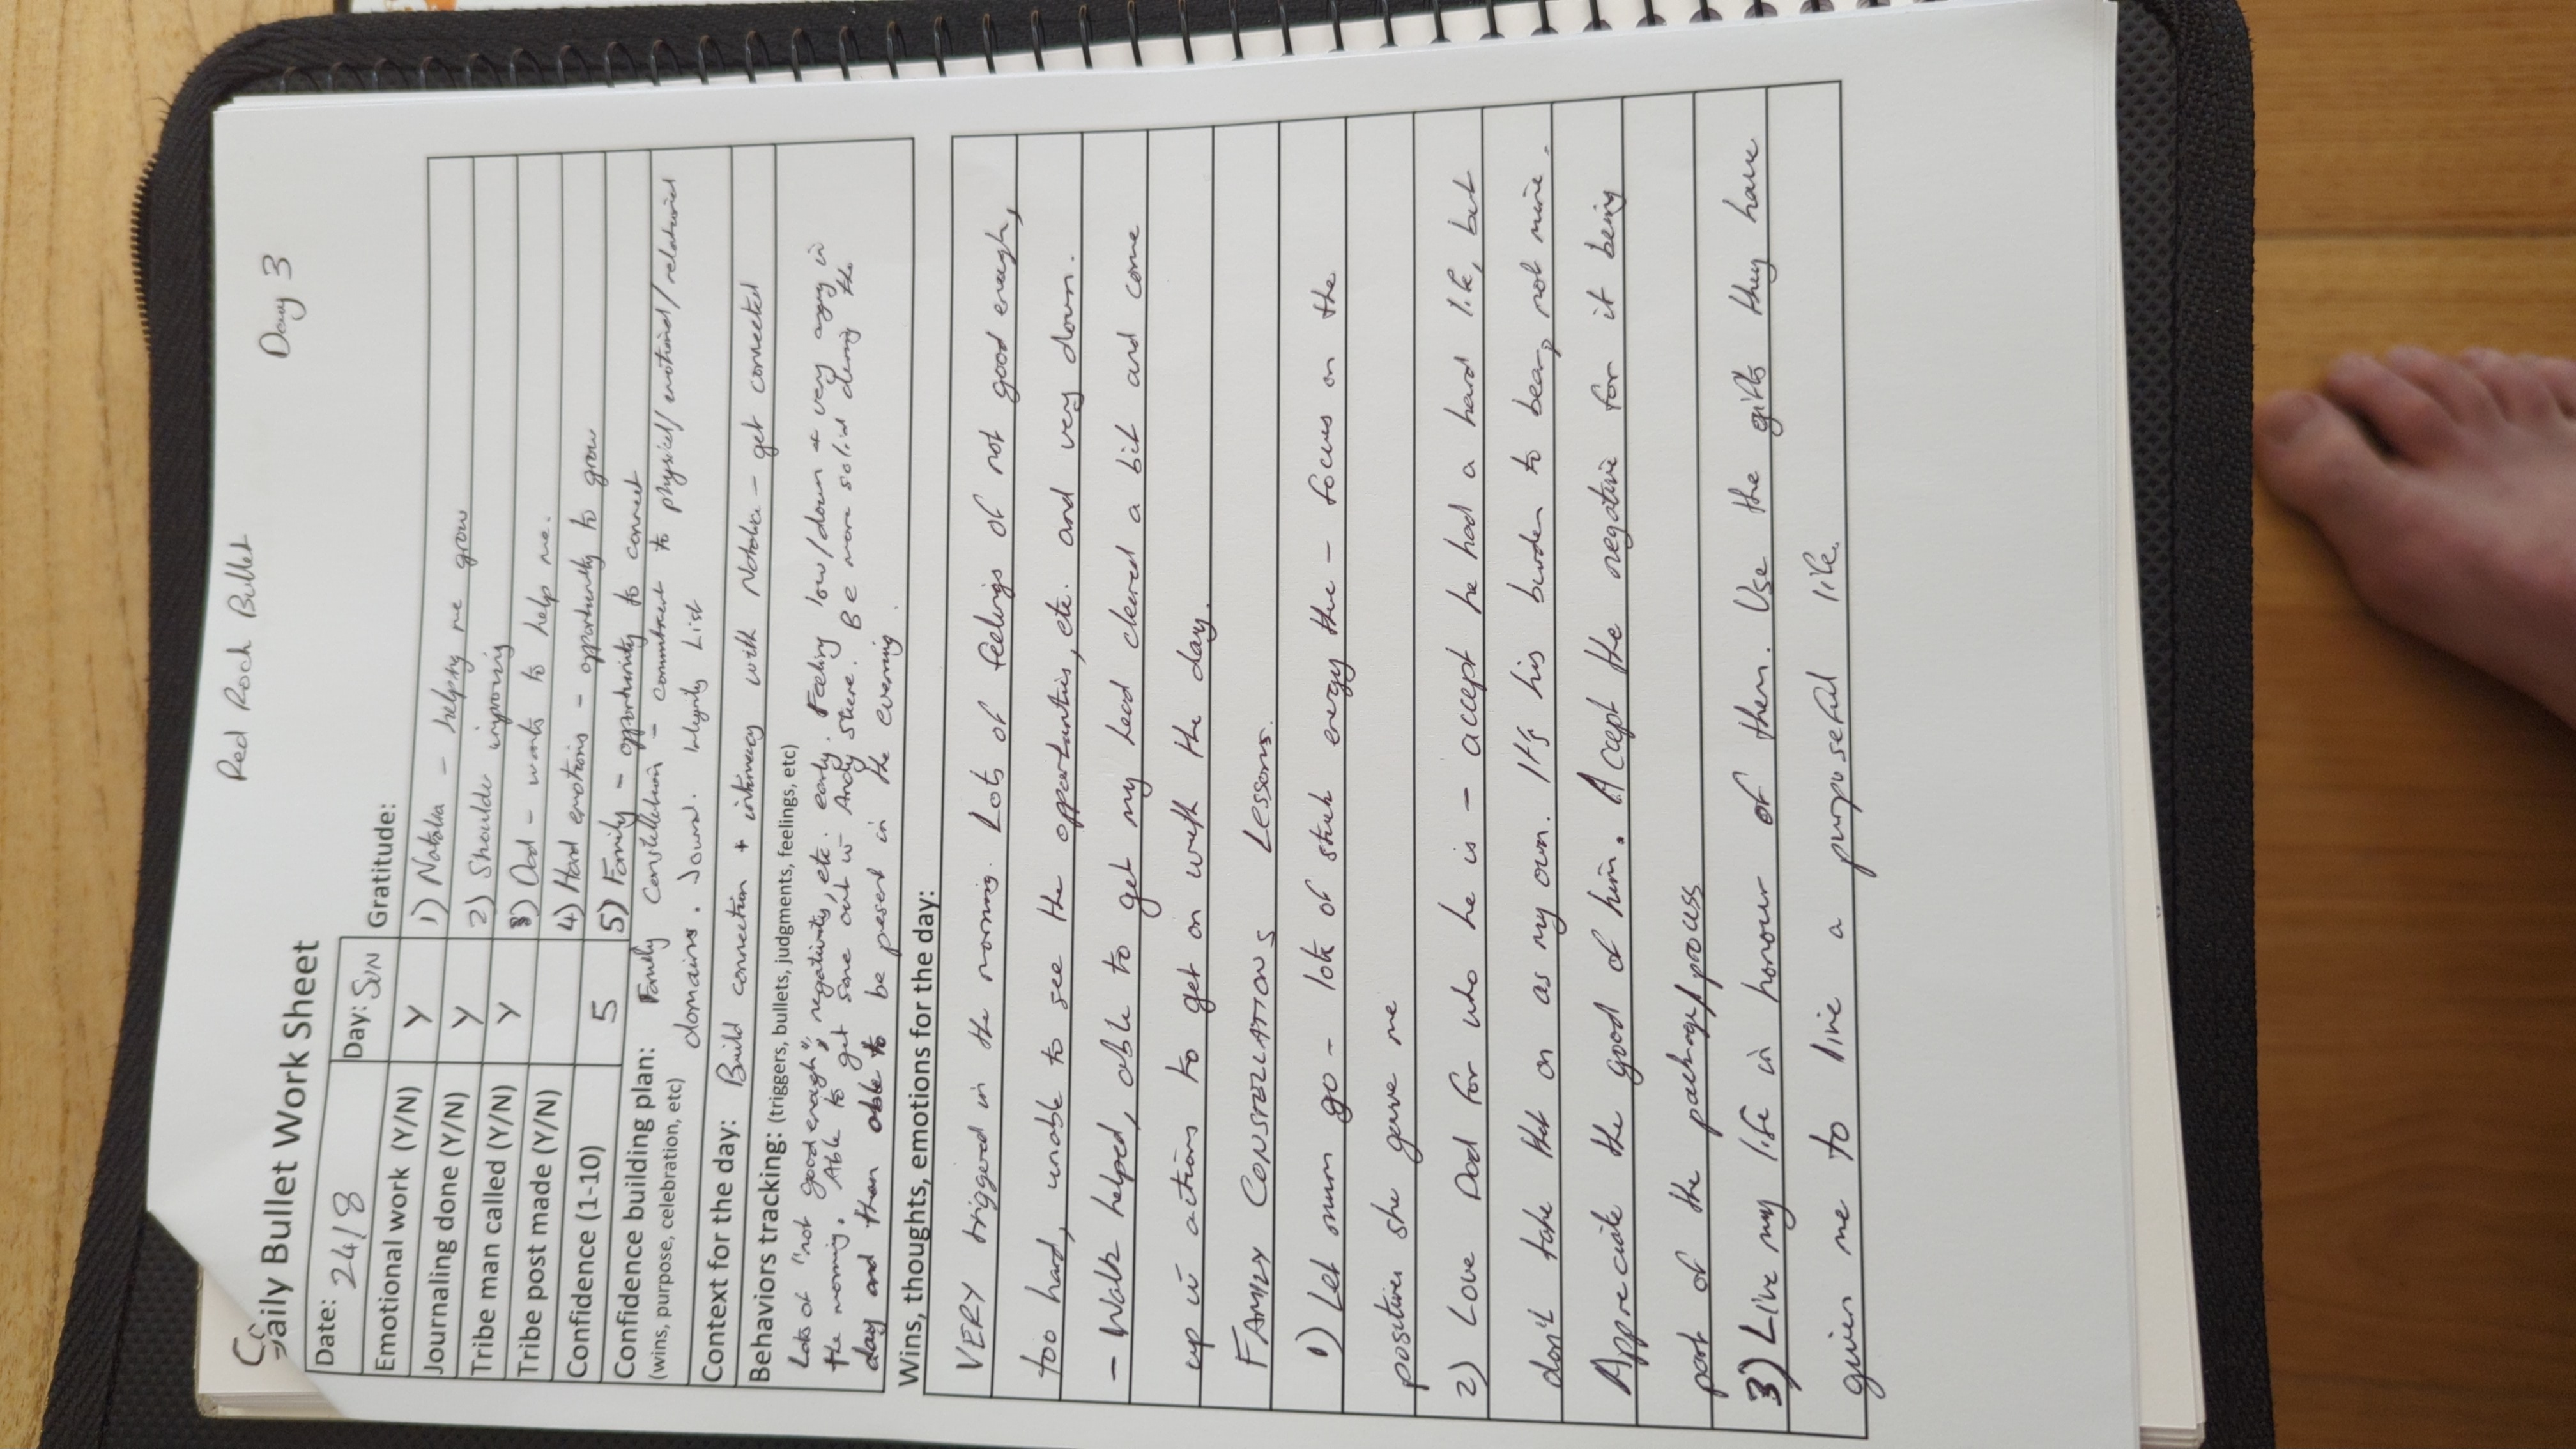 Red Rock Bullet
Day 3
Daily Bullet Work Sheet
Date: 24/8
Day: SUN
Gratitude:
Emotional work (Y/N) Y
1) Natalia - helping me grow
Journaling done (Y/N) Y
2) Shoulder improving
Tribe man called (Y/N) Y
3) Dad - wants to help me.
Tribe post made (Y/N)
4) Hard emotions - opportunity to grow
Confidence (1-10) 5
5) Family - opportunity to connect
Confidence building plan: Family Constellation - commitment to physical/emotional/relational
(wins, purpose, celebration, etc) domains. Journal. Integrity List
Context for the day: Build connection + intimacy with Natalia - get connected
Behaviors tracking: (triggers, bullets, judgments, feelings, etc)
Lots of "not good enough", negativity, etc. early. Feeling low/down + very angry in
the morning. Able to get some out w Andy there. Be more solid during the
day and then able to be present in the evening.
Wins, thoughts, emotions for the day:
VERY triggered in the morning. Lots of feelings of not good enough,
too hard, unable to see the opportunities, etc. and very down.
- Walk helped, able to get my head cleared a bit and come
up w actions to get on with the day.
FAMILY CONSTELLATIONS Lessons.
1) Let mum go - lots of stuck energy there - focus on the
positives she gave me
2) Love Dad for who he is - accept he had a hard life, but
don't take that on as my own. It's his burden to bear, not mine.
Appreciate the good of him. Accept the negative for it being
part of the package/process
3) Live my life in honour of them. Use the gifts they have
given me to live a purposeful life.